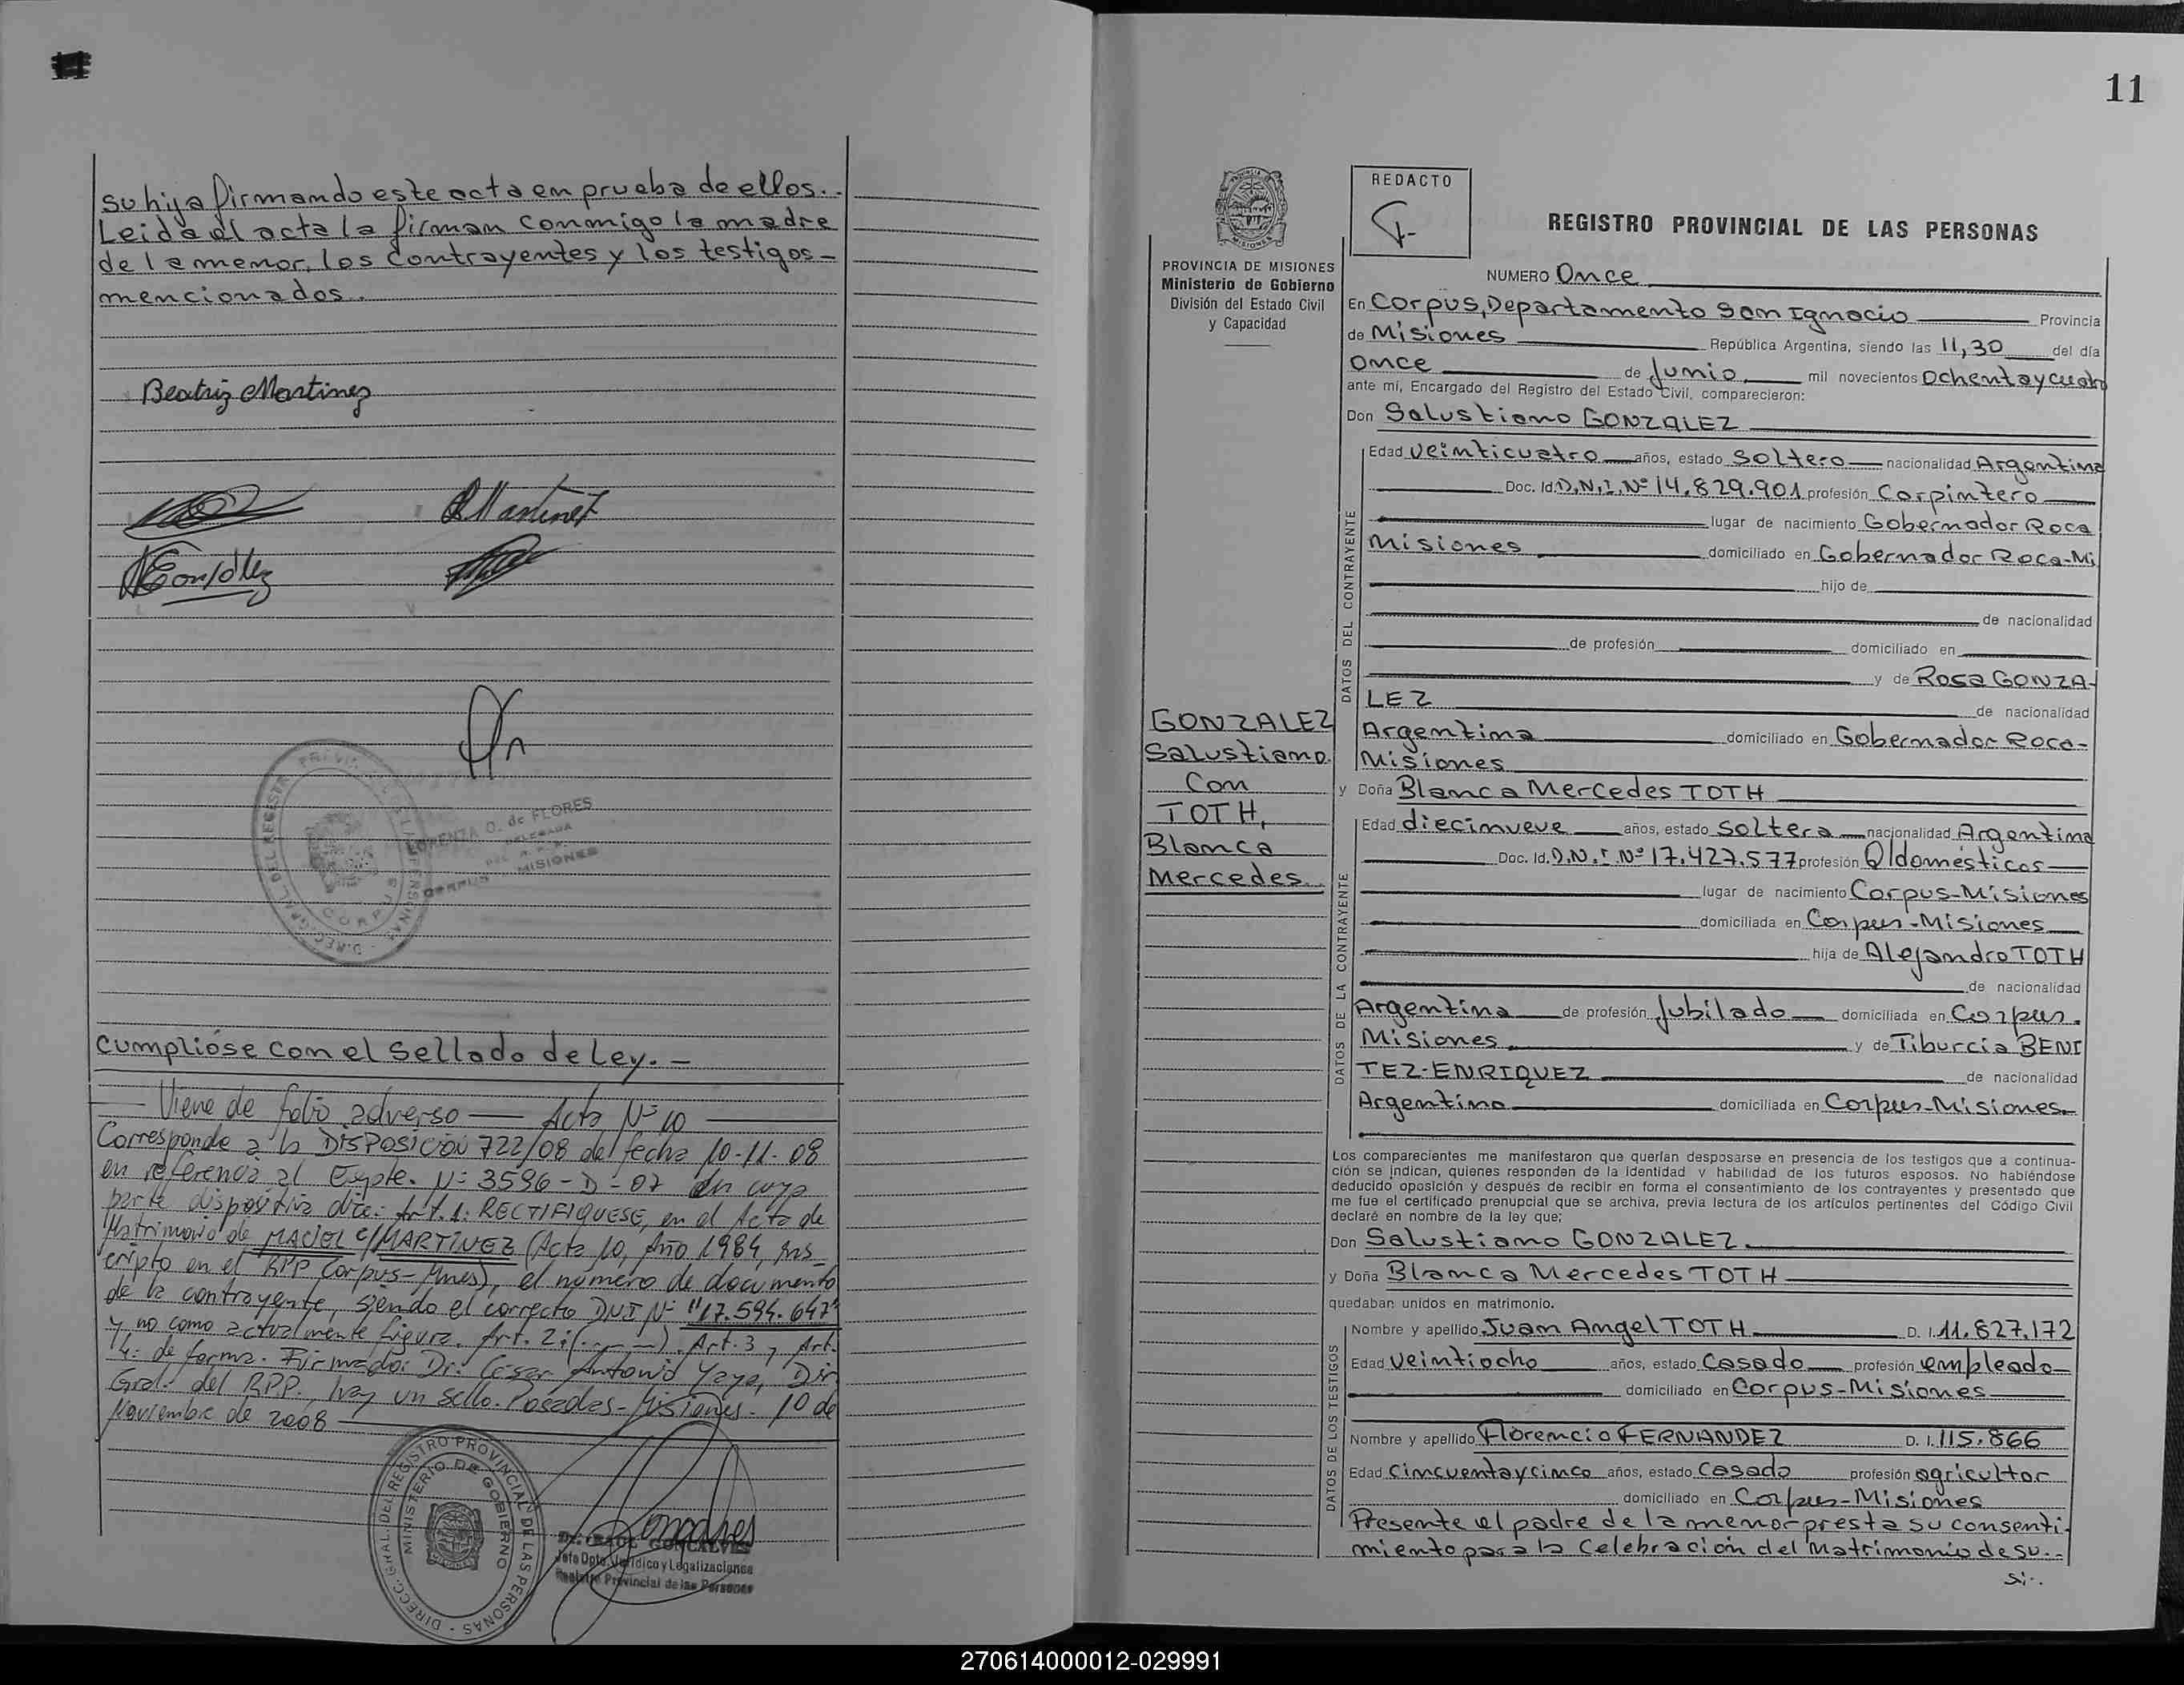 su hija firmando este acta en prueba de ellos.-
Leida el acta la firman conmigo la madre
de la menor, los contrayentes y los testigos-
mencionados.
Beatriz Martinez
Cumplióse con el Sellado de Ley.-
Viene de folio adverso — Acta Nº 10
Corresponde a la DISPOSICION 722/08 de fecha 10-11-08
en referencia al Expte. Nº 3596-D-07 en cuya
parte dispositiva dice: Art. 1: RECTIFIQUESE, en el Acta de
Matrimonio de MACIEL c/MARTINEZ (Acta 10, Año 1984, Ins-
cripto en el RPP Corpus-Mnes), el número de documento
de la contrayente, siendo el correcto DNI Nº "17.594.647"
y no como actualmente figura. Art. 2: (.-.-). Art. 3 y Art.
4: de forma. Firmado: Dr. César Antonio Yaya, Dir
Gral. del RPP. hay un sello. Posadas-Misiones. 10 de
Noviembre de 2008
DIREC. GRAL. DEL REGISTRO PROVINCIAL DE LAS PERSONAS
MINISTERIO DE GOBIERNO
Dr. RAUL GONCALVES
Jefe Dpto. Jurídico y Legalizaciones
Registro Provincial de las Personas
O. de FLORES
DELEGADA
CORPUS - MISIONES
11
PROVINCIA DE MISIONES
Ministerio de Gobierno
División del Estado Civil
y Capacidad
REDACTO
REGISTRO PROVINCIAL DE LAS PERSONAS
NUMERO Once
En Corpus, Departamento San Ignacio Provincia
de Misiones República Argentina, siendo las 11,30 del día
once de Junio mil novecientos Ochentaycuatro
ante mí, Encargado del Registro del Estado Civil, comparecieron:
Don Salustiano GONZALEZ
DATOS DEL CONTRAYENTE
Edad veinticuatro años, estado Soltero nacionalidad Argentina
Doc. Id. D.N.I. Nº 14.829.901 profesión Carpintero
lugar de nacimiento Gobernador Roca
Misiones domiciliado en Gobernador Roca-Mi
hijo de
de nacionalidad
de profesión domiciliado en
y de Rosa GONZA-
LEZ de nacionalidad
Argentina domiciliado en Gobernador Roca-
Misiones
GONZALEZ
Salustiano
Con
TOTH,
Blanca
Mercedes
y Doña Blanca Mercedes TOTH
DATOS DE LA CONTRAYENTE
Edad diecinueve años, estado soltera nacionalidad Argentina
Doc. Id. D.N.I. Nº 17.427.577 profesión Q/domésticos
lugar de nacimiento Corpus-Misiones
domiciliada en Corpus-Misiones
hija de Alejandro TOTH
de nacionalidad
Argentina de profesión Jubilado domiciliada en Corpus.
Misiones y de Tiburcia BENI
TEZ-ENRIQUEZ de nacionalidad
Argentina domiciliada en Corpus-Misiones
Los comparecientes me manifestaron que querían desposarse en presencia de los testigos que a continua-
ción se indican, quienes responden de la identidad y habilidad de los futuros esposos. No habiéndose
deducido oposición y después de recibir en forma el consentimiento de los contrayentes y presentado que
me fue el certificado prenupcial que se archiva, previa lectura de los artículos pertinentes del Código Civil
declaré en nombre de la ley que:
Don Salustiano GONZALEZ
y Doña Blanca Mercedes TOTH
quedaban unidos en matrimonio.
DATOS DE LOS TESTIGOS
Nombre y apellido Juan Angel TOTH D. I. 11.827.172
Edad veintiocho años, estado Casado profesión empleado
domiciliado en Corpus-Misiones
Nombre y apellido Florencio FERNANDEZ D. I. 115.866
Edad cincuentaycinco años, estado Casado profesión agricultor
domiciliado en Corpus-Misiones
Presente el padre de la menor presta su consenti-
miento para la Celebración del Matrimonio de su.-
Si-.
270614000012-029991